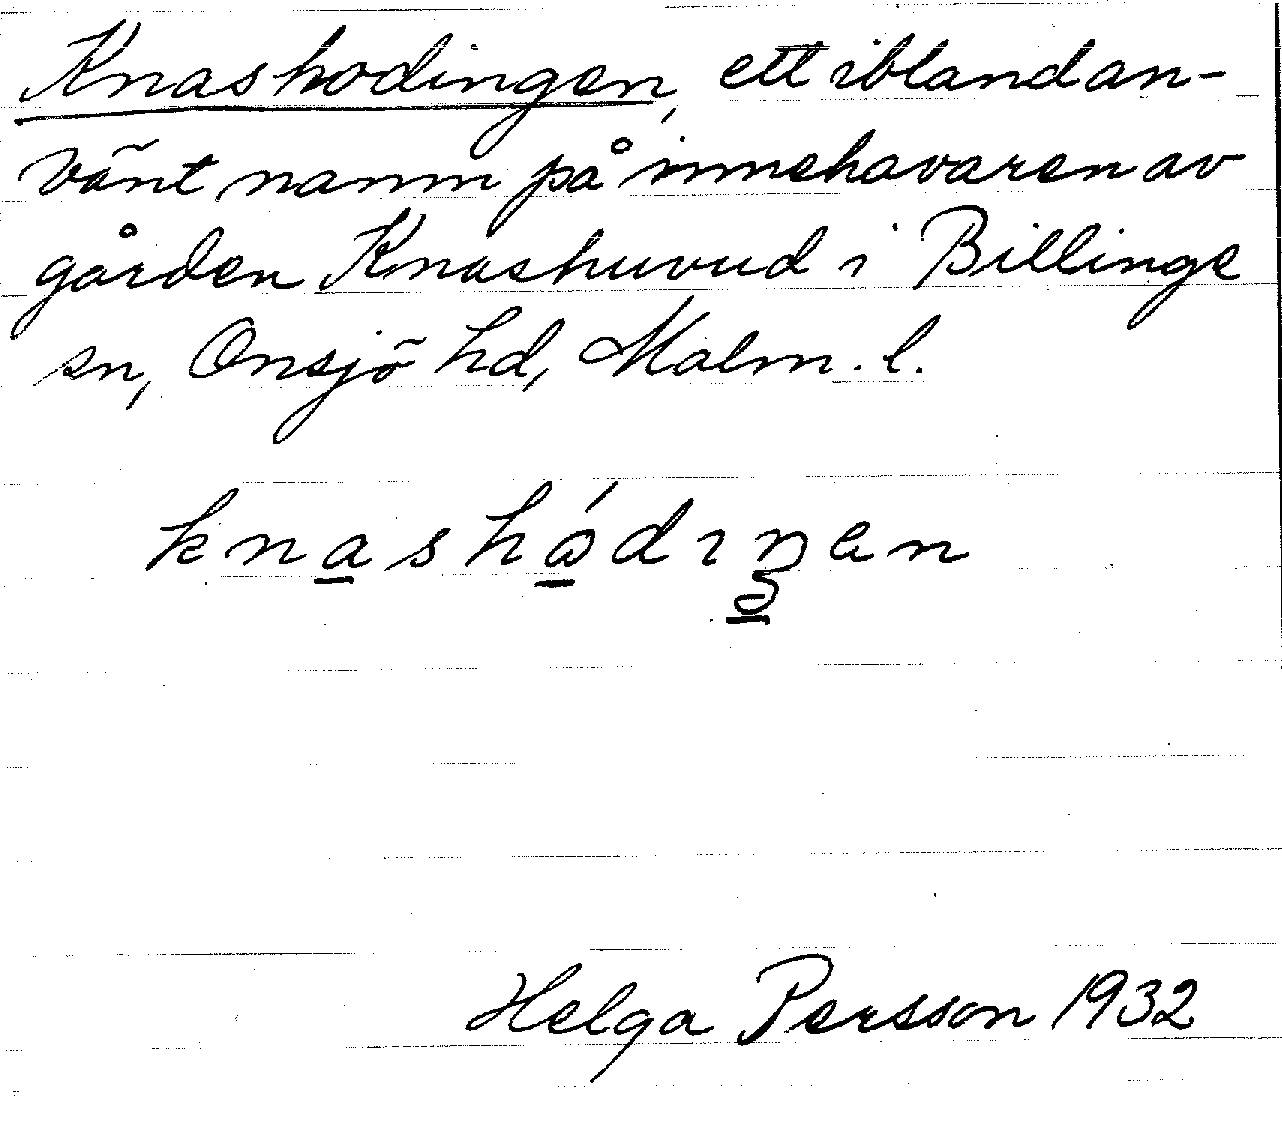 Knashodingen, ett ibland an-
vänt namn på innehavaren av
gården Knashuvud i Billinge
sn, Onsjö hd, Malm. l.
Helga Persson 1932